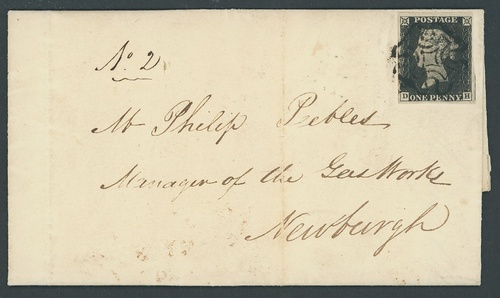 POSTAGE
D H
ONE PENNY
No. 2
Mr Philip Peebles
Manager of the Gas Works
Newburgh